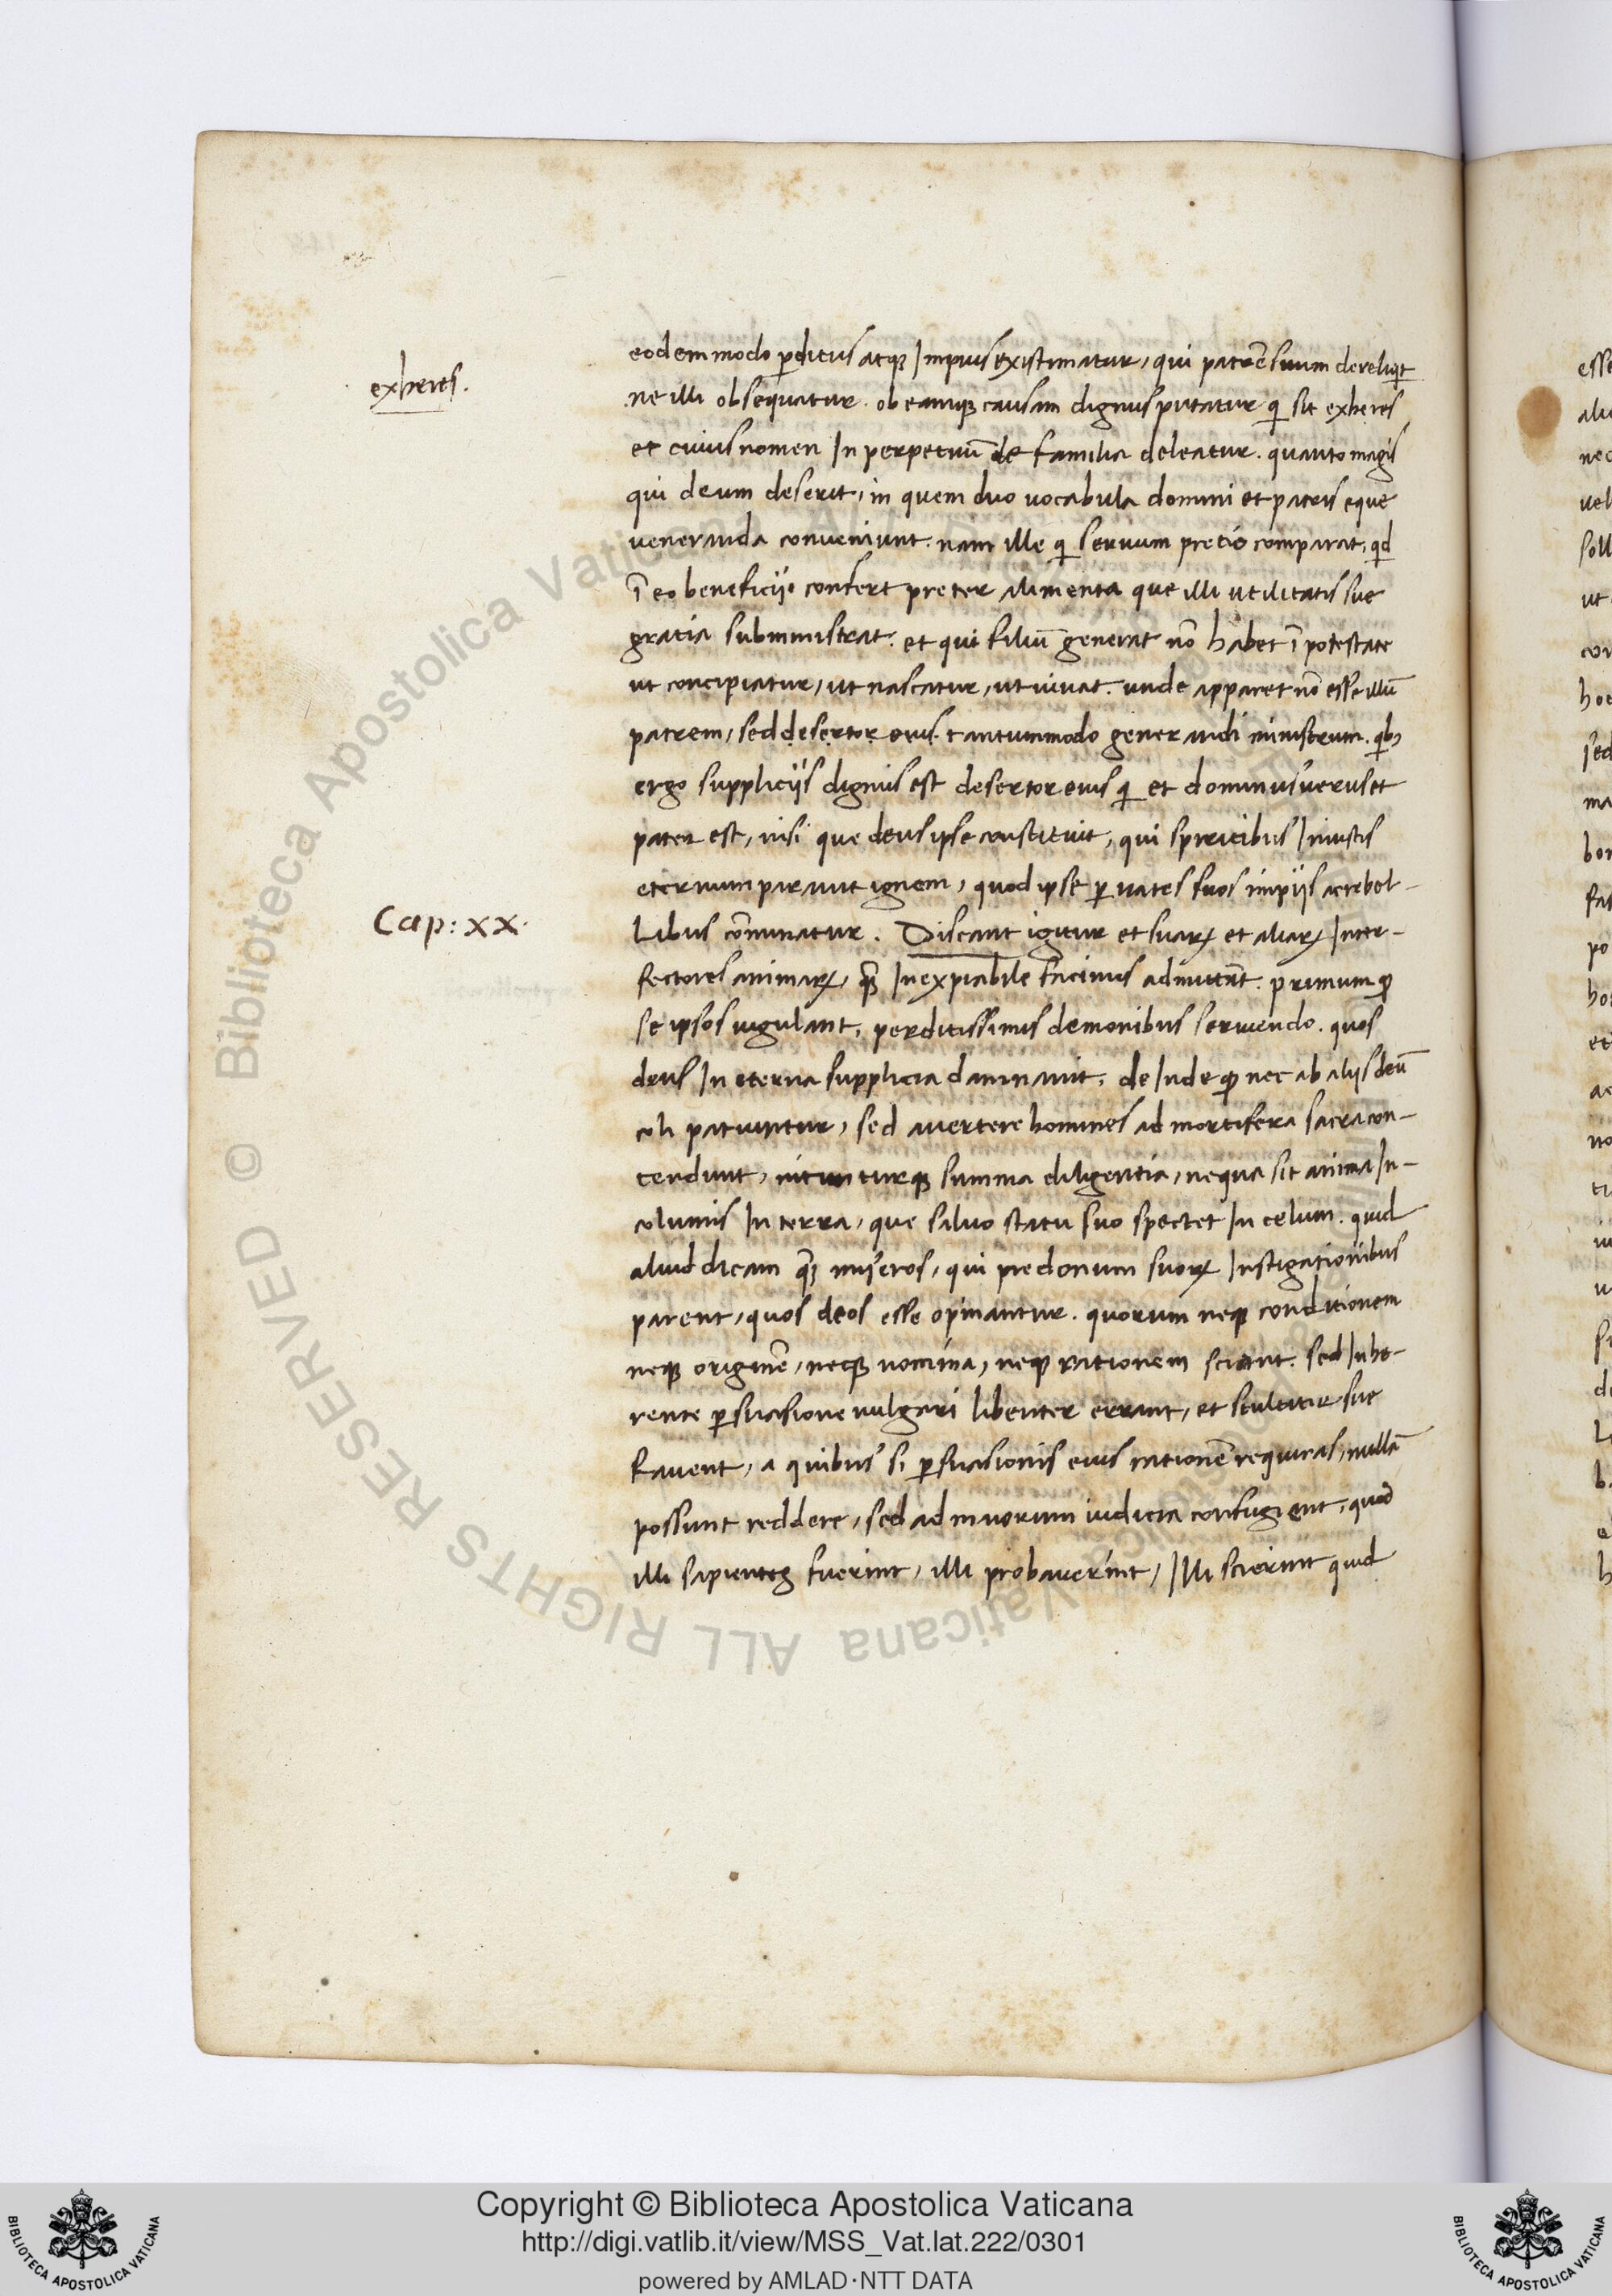 exheres.
eodem modo ꝑditus atqꝫ Impius existimatur, qui patrē suum dereliqͥt
ne illi obsequatur. ob eamqꝫ causam dignus putatur qͥ sit exheres
et cuius nomen In perpetuū de familia deleatur. quanto magis
qui deum deserit, in quem duo uocabula domini et patris eque
ueneranda conueniunt. nam ille qͥ seruum precio comparat, qͥd
ī eo beneficij confert preter alimenta que illi utilitatis sue
gratia subministrat. et qui filiū generat nō habet ī potestate
ut concipiatur, ut nascatur, ut uiuat. unde apparet nō esse illū
patrem, sed desertor eius tantummodo generandi ministrum. qͥbꝫ
ergo supplicijs dignus est desertor eius qͥ et dominus uerus et
pater est, nisi que deus ipse constituit, qui spiritibus Iniustis
eternum parauit ignem, quod ipse ꝑ uates suos impijs ac rebel-
Cap: XX.
libus cōminatur. Discant igitur et suaꝝ et aliaꝝ Inter-
fectores animaꝝ, qͣꝫ Inexpiabile facinus admittāt. primum ꝙ
se ipsos iugulant, perditissimis demonibus seruiendo. quos
deus In eterna supplicia damnauit, deInde ꝙ nec ab alijs deū
coli patiuntur, sed auertere homines ad mortifera sacra con-
tendunt, nitunturqꝫ summa diligentia, nequa sit anima In-
columis In terra, que saluo statu suo spectet In celum. quid
aliud dicam qͣꝫ miseros, qui predonum suoꝝ Instigationibus
parent, quos deos esse opinantur. quorum neqꝫ conditionem
neqꝫ originē, neqꝫ nomina, neqꝫ rationem sciant. sed Inhe-
rente ꝑsuasione uulgari libenter errant, et stultitie sue
fauent, a quibus si ꝑsuasionis eius rationē requiras, nullā
possunt reddere, sed ad maiorum iudicia confugient, quod
illi sapientes fuerint, illi probauerint, Illi scierint quid
Copyright © Biblioteca Apostolica Vaticana
http://digi.vatlib.it/view/MSS_Vat.lat.222/0301
powered by AMLAD·NTT DATA